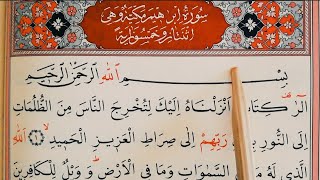 سورة ابرهيم مكية وهى
اثنتان وخمسون اية
بسم الله الرحمن الرحيم
الر كتاب انزلناه اليك لتخرج الناس من الظلمات
الى النور ربهم الى صراط العزيز الحميد الله
الذى له السموات وما فى الارض وويل للكافرين